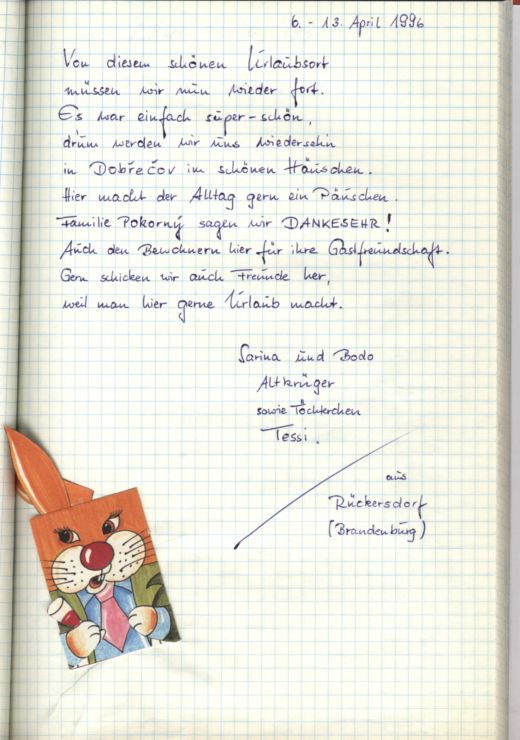 6. - 13. April 1996
Von diesem schönen Urlaubsort
müssen wir nun wieder fort.
Es war einfach super-schön,
drum werden wir uns wiedersehn
in Dobřečov im schönen Häuschen.
Hier macht der Alltag gern ein Päuschen.
Familie Pokorný sagen wir DANKESEHR!
Auch den Bewohnern hier für ihre Gastfreundschaft.
Gern schicken wir auch Freunde her,
weil man hier gerne Urlaub macht.
Sarina und Bodo
Altkrüger
sowie Töchterchen
Tessi.
aus
Rückersdorf
(Brandenburg)